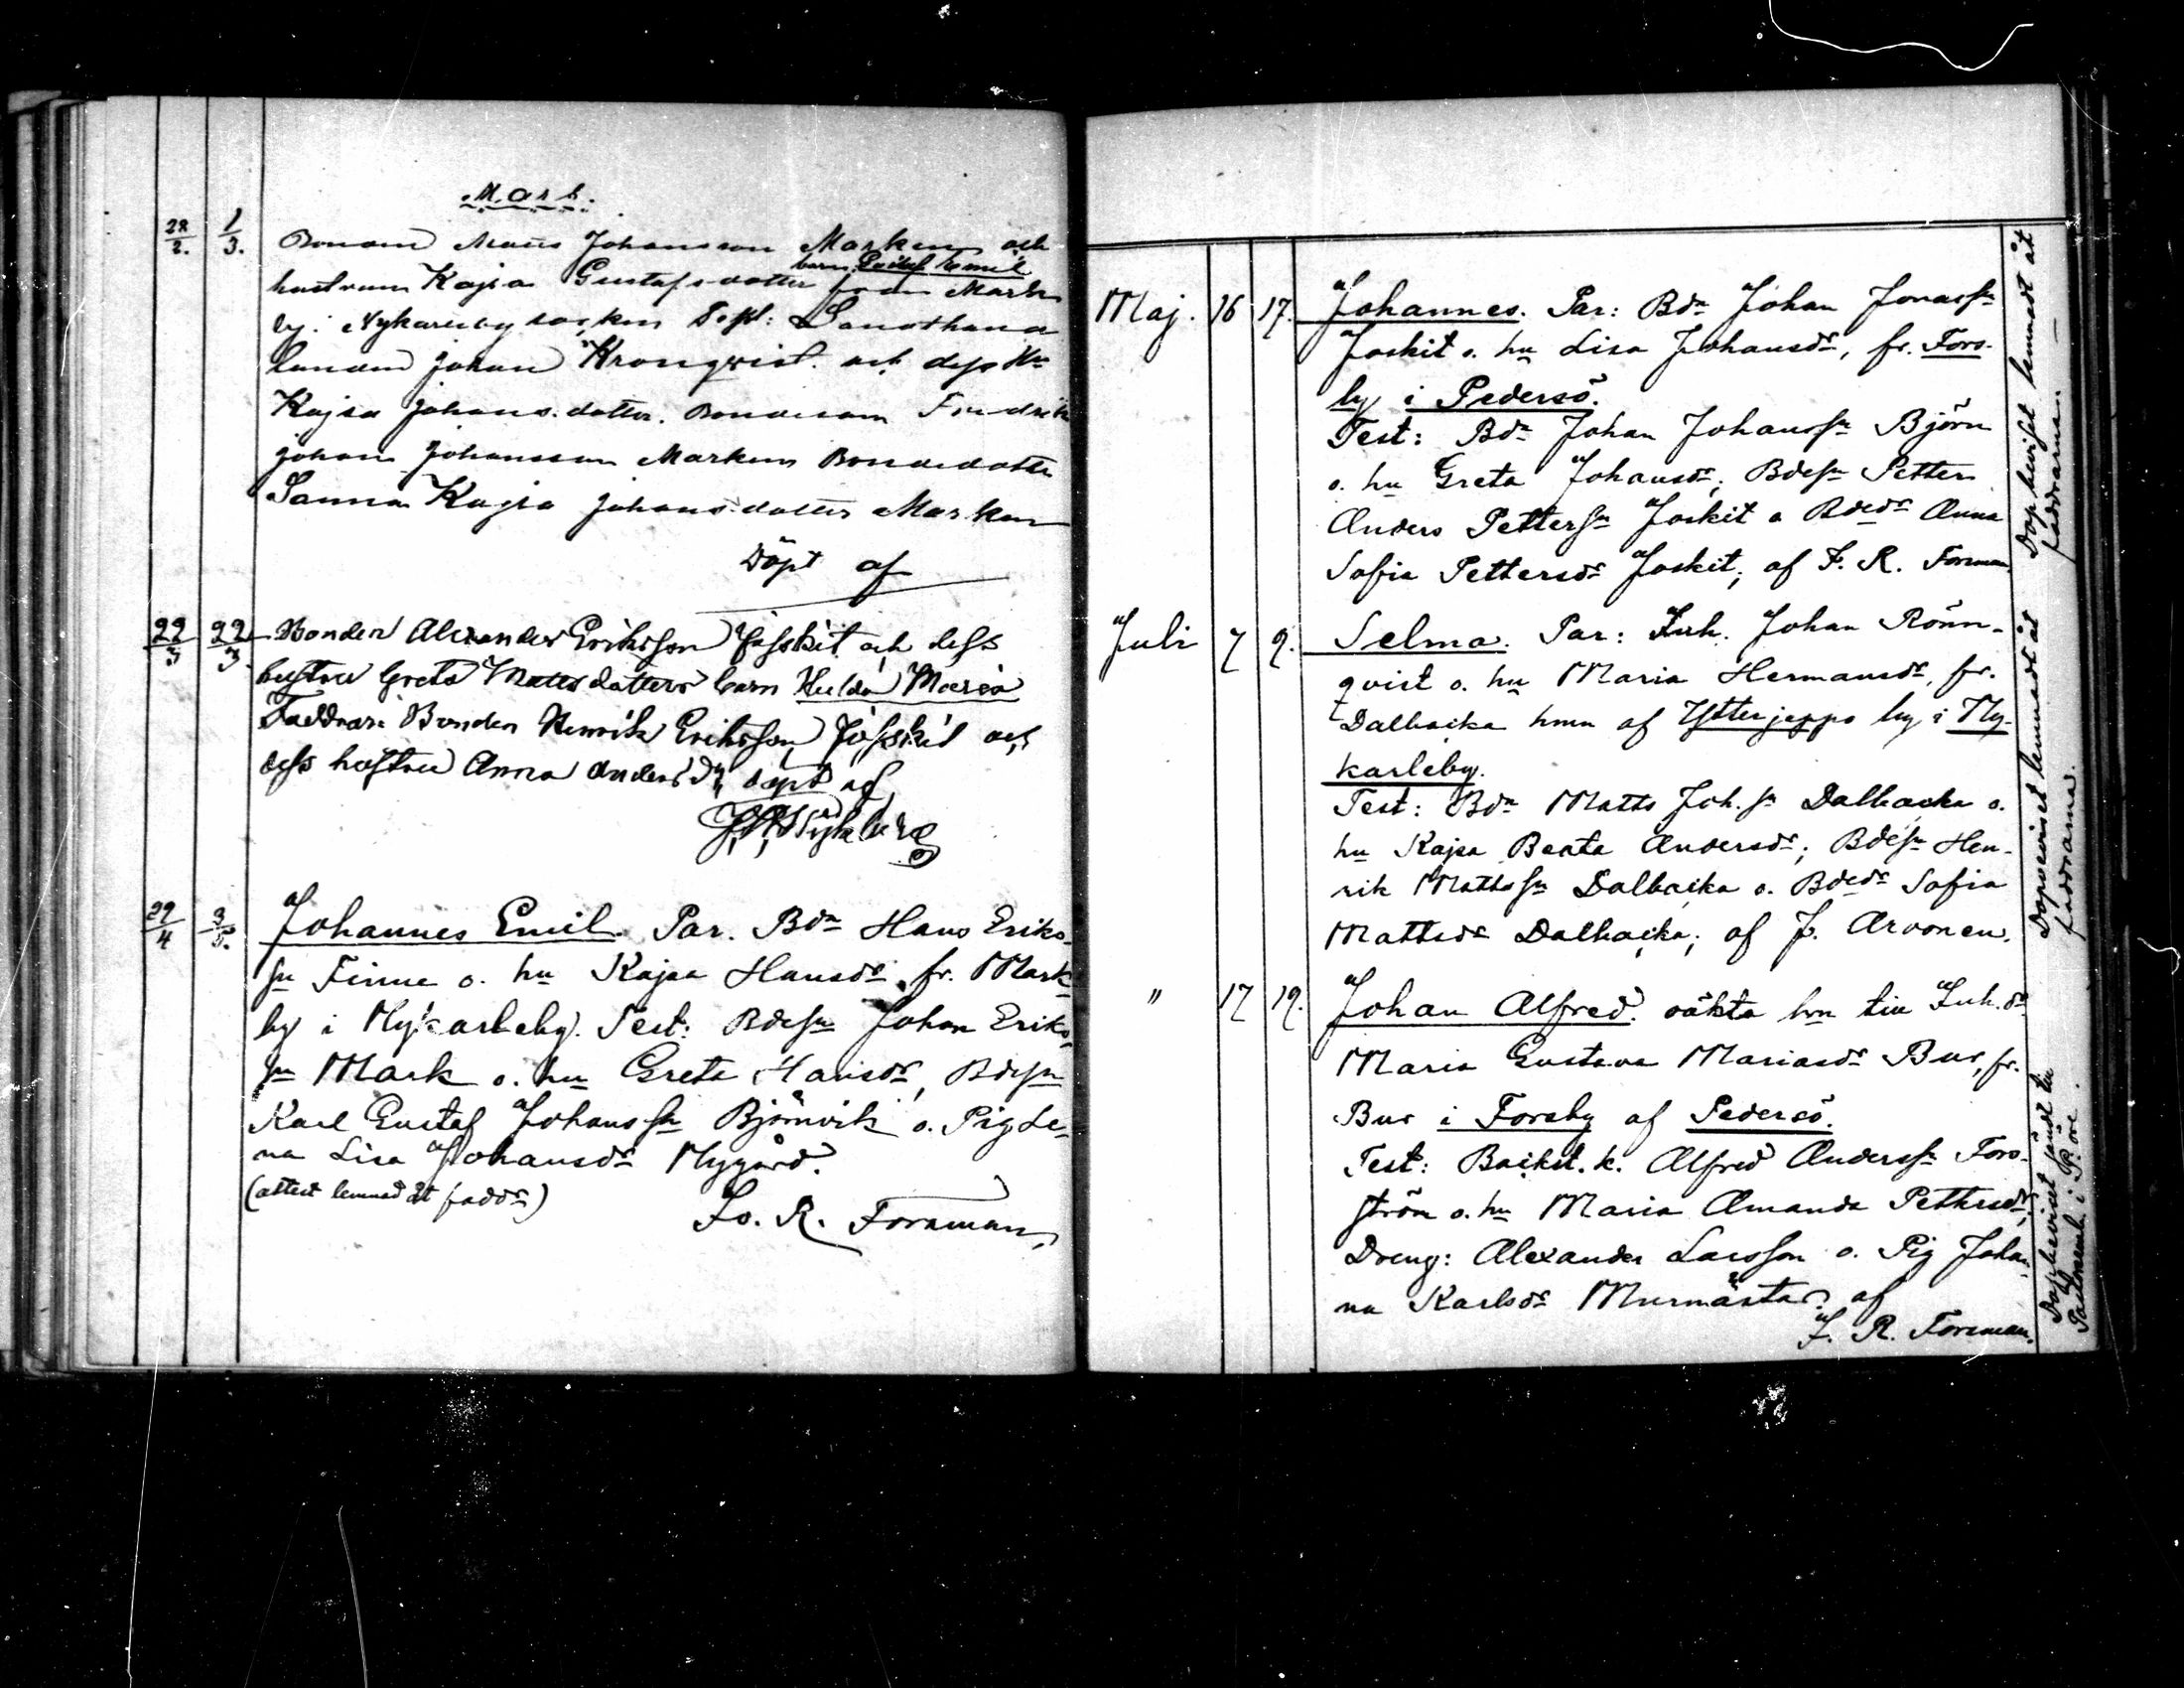 Mars.
28/2. 1/3. Bonden Mats Johansson Marken och
hustrun Kajsa Gustafsdotter barn Gustaf Emil från Mark
by i Nykarleby socken Test: Landthand
landen Johan Kronqvist och dess Hu
Kajsa Johansdotter. Bondeson Fredrik
Johan Johansson Marken Bondedotter
Sanna Kajsa Johansdotter Marken
Döpt af
22/3 22/3 Bonden Alexander Eriksson Josskit och dess
hustru Greta Mattsdotters barn Hulda Maria
Faddrar: Bonden Henrik Eriksson Josskit och
dess hustru Anna Andersdr, döpt af
29/4 3/5. Johannes Emil. Par. Bdn Hans Eriks-
sn Finne o. hu Kajsa Hansdr fr. Mark-
by i Nykarleby. Test: Bdesn Johan Eriks-
sn Mark o. hu Greta Hansdr, Bdesn
Karl Gustaf Johanssn Björnvik o. Pig Le-
na Lisa Johansdr Nygård.
(attest lemnad åt faddr)
R. Forsman.
Maj. 16 17. Johannes. Par: Bdn Johan Jonassn
Joskit o. hu Lisa Johansdr, fr. Fors-
by i Pedersö.
Test: Bdn Johan Johanssn Björn
o. hu Greta Johansdr; Bdesn Petter
Anders Petterssn Joskit o Bdedr Anna
Sofia Pettersdr Joskit; af F. R. Forsman.
Dopbeviset lemnadt åt
faddrarne.
Juli 7 9. Selma. Par: Inh. Johan Rönn-
qvist o. hu Maria Hermansdr, fr.
Dalbacka hmn af Ytterjeppo by i Ny-
karleby.
Test: Bdn Matts Joh.sn Dalbacka o.
hu Kajsa Beata Andersdr; Bdesn Hen-
rik Mattssn Dalbacka o. Bdedr Sofia
Mattsdr Dalbacka; af J. Arvonen.
Dopbeviset lemnadt åt
faddrarna.
" 17 19. Johan Alfred. oäkta brn till Inh.dr
Maria Gustava Mariasdr Bur, fr.
Bur i Forsby af Pedersö.
Test: Backst. k. Alfred Anderssn Fors-
ström o. hu Maria Amanda Pettersdr;
Dreng: Alexander Larsson o. Pig Johan-
na Karlsdr Murmästar. af
F. R. Forsman.
Dopbeviset sändt till
i P:öre.